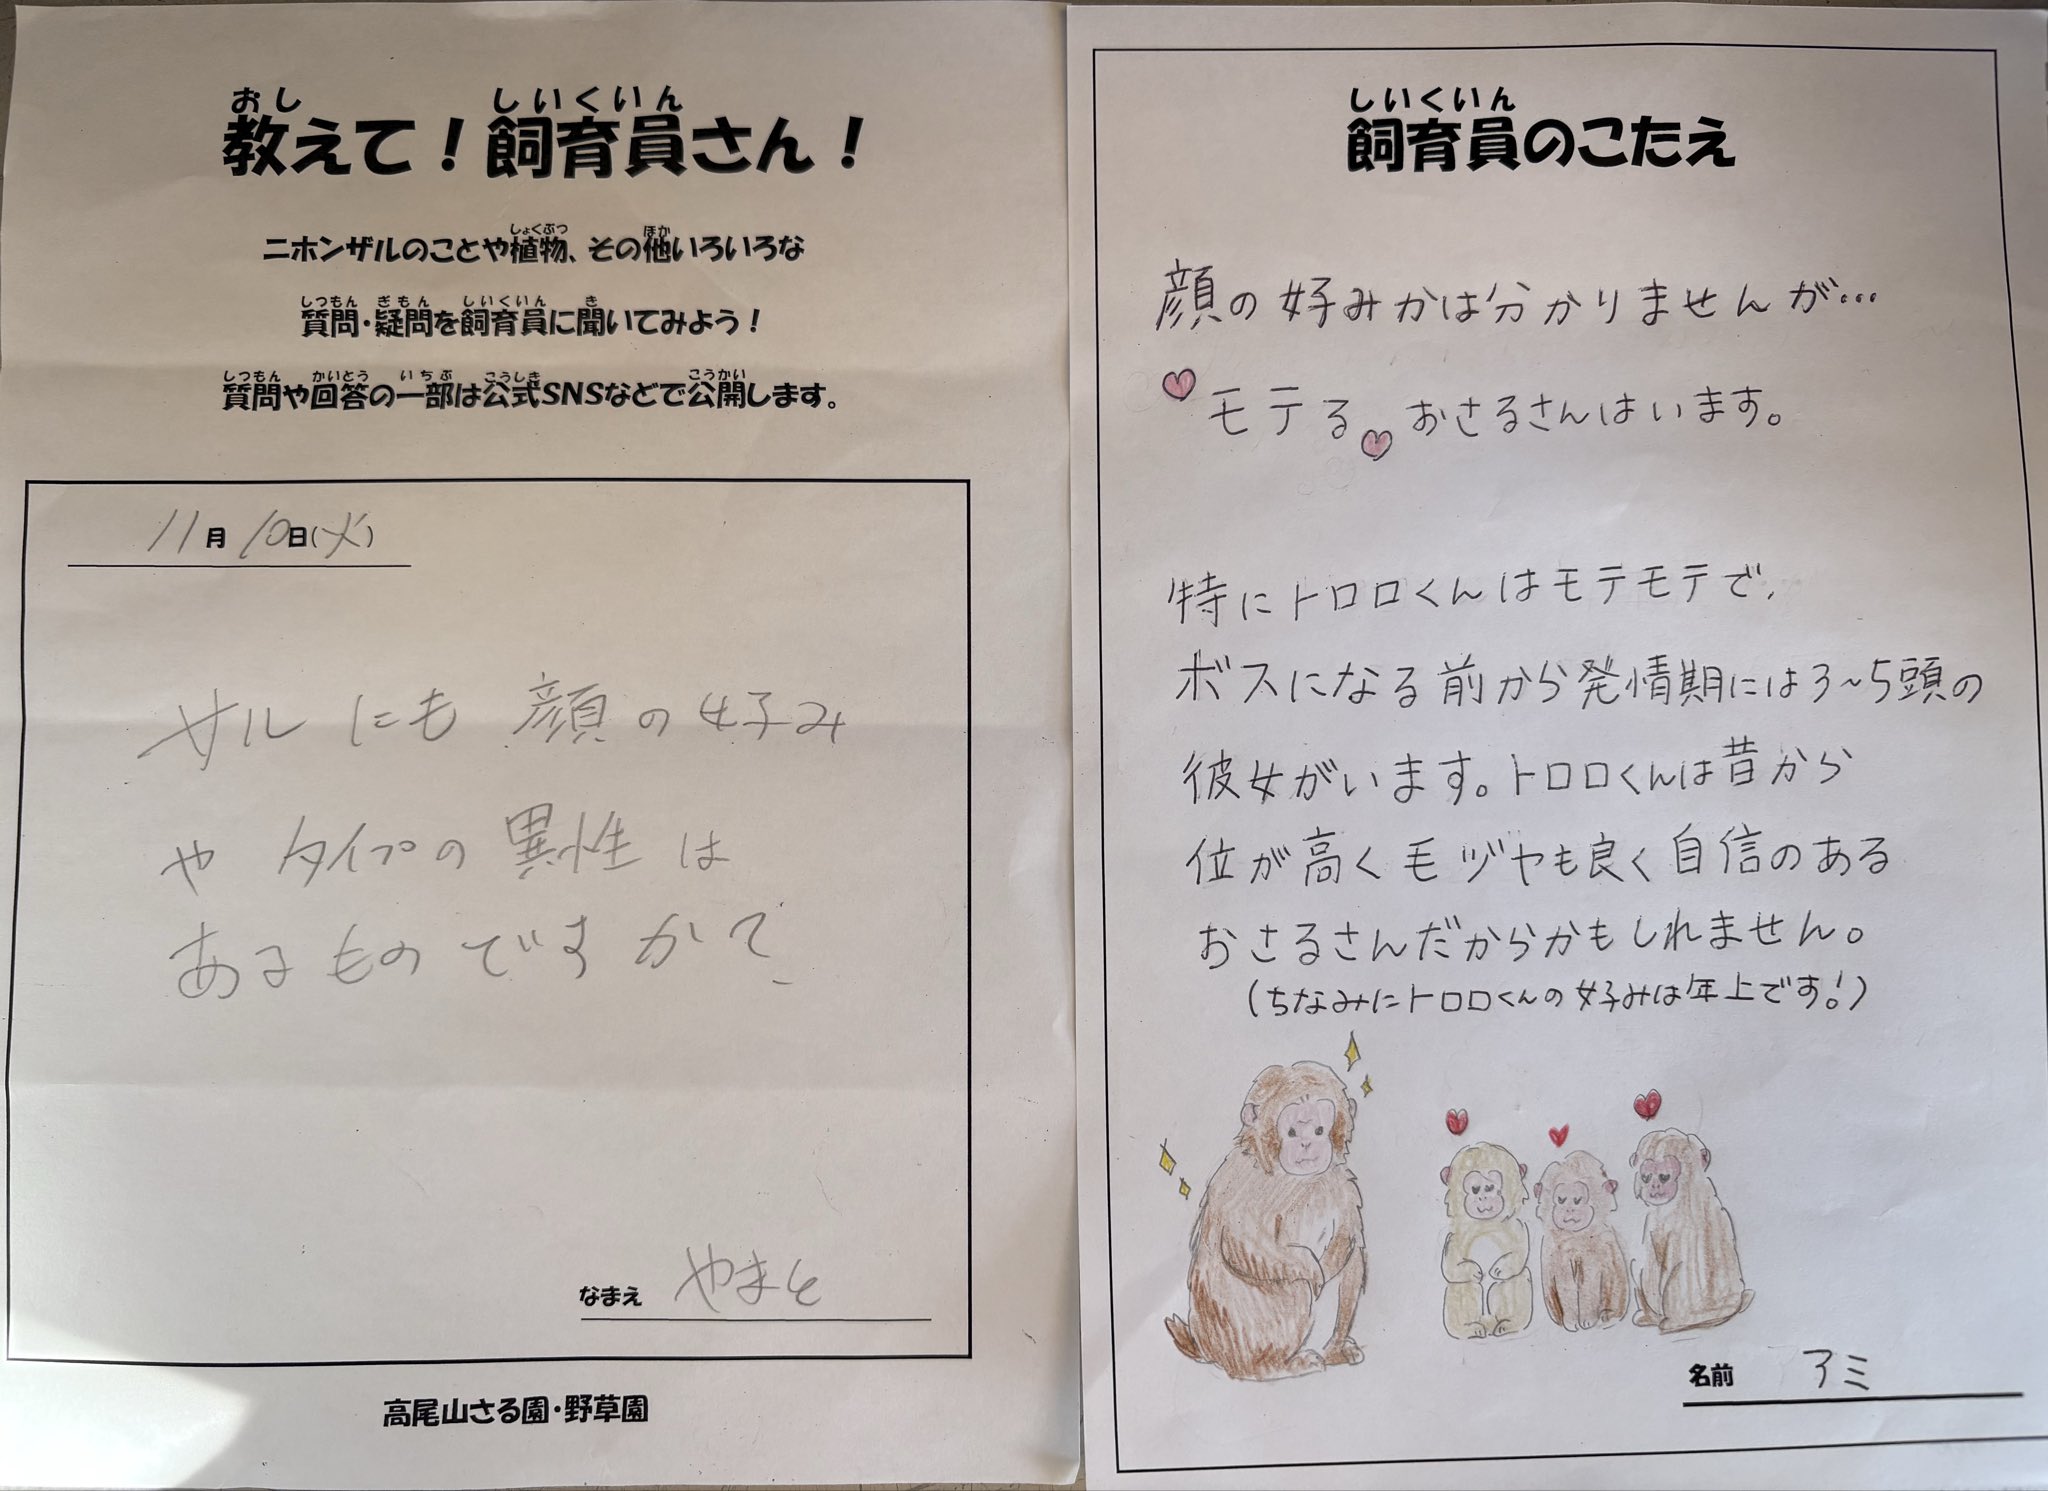 教えて！飼育員さん！
ニホンザルのことや植物、その他いろいろな
質問・疑問を飼育員に聞いてみよう！
質問や回答の一部は公式SNSなどで公開します。
11月10日(火)
サルにも顔の好み
やタイプの異性は
あるものですかて
なまえ やまと
高尾山さる園・野草園
飼育員のこたえ
顔の好みかは分かりませんが…
モテるおさるさんはいます。
特にトロロくんはモテモテで、
ボスになる前から発情期には3~5頭の
彼女がいます。トロロくんは昔から
位が高く毛ヅヤも良く自信のある
おさるさんだからかもしれません。
(ちなみにトロロくんの好みは年上です!)
名前 アミ